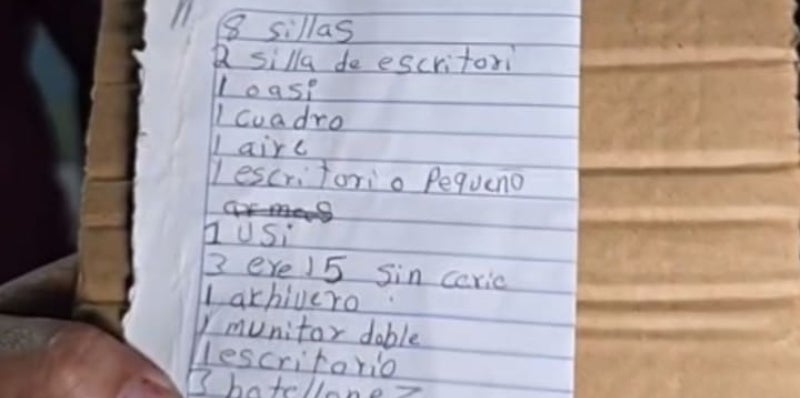 8 sillas
2 silla de escritori
1 oasi
1 cuadro
1 aire
1 escritorio Pequeno
armas
1 USi
3 ere 15 Sin cerie
1 arhivero
1 munitor doble
1 escritorio
3 botellone